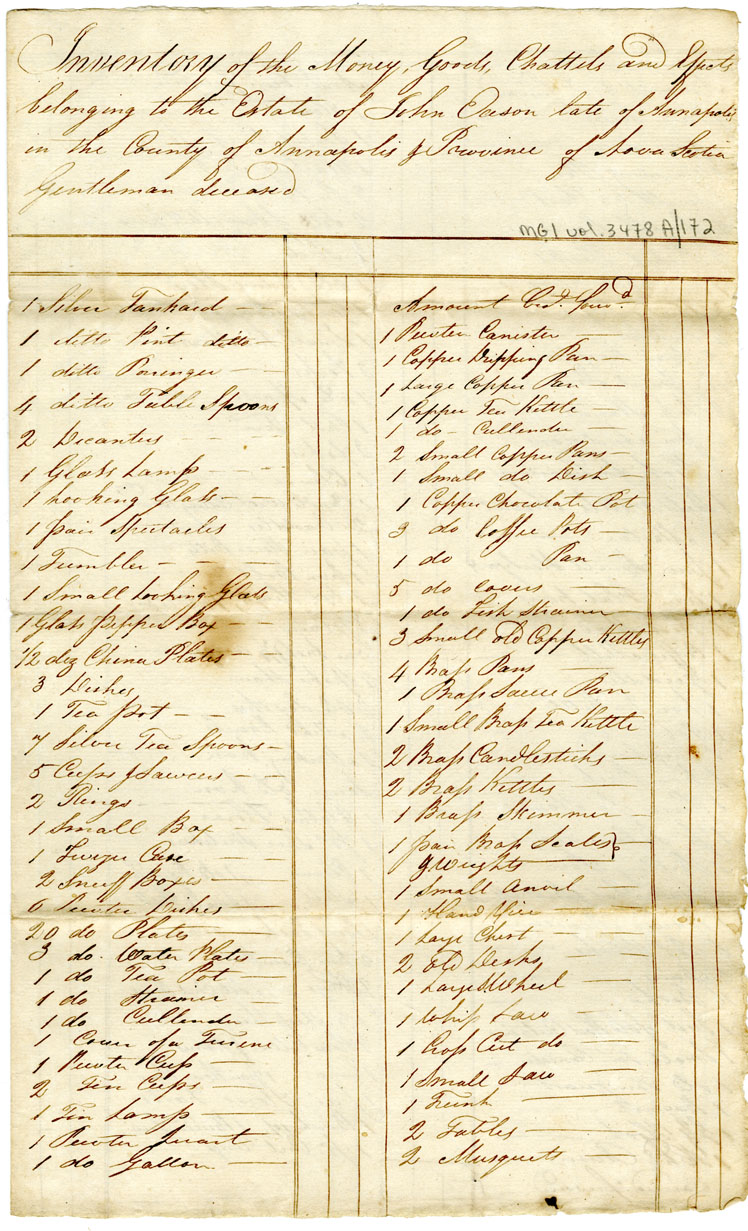 Inventory of the Money, Goods, Chattels and Effects
belonging to the Estate of John Eason late of Annapolis
in the County of Annapolis & Province of Nova Scotia
Gentleman deceased
MG1 vol. 3478 A/172
1 Silver Tankard
1 ditto Pint ditto
1 ditto Poringer
4 ditto Table Spoons
2 Decanters
1 Glass Lamp
1 Looking Glass
1 pair Spectacles
1 Tumbler
1 Small Looking Glass
1 Glass pepper Box
1/2 doz China Plates
3 Dishes
1 Tea pot
7 Silver Tea Spoons
5 Cups & Sawcers
2 Rings
1 Small Box
1 Twezer Case
2 Snuff Boxes
6 Pewter Dishes
20 do Plates
3 do. Water Plates
1 do Tea Pot
1 do Strainer
1 do Cullender
1 Cover of a Turene
1 Pewter Cup
2 Tin Cups
1 Tin Lamp
1 Pewter Quart
1 do Gallon
Amount
1 Pewter Canister
1 Copper Dripping Pan
1 Large Copper Pan
1 Copper Tea Kettle
1 do Cullender
2 Small Copper Pans
1 Small do Dish
1 Copper Chocolate Pot
3 do Coffee Pots
1 do Pan
5 do Covers
1 do Fish Strainer
3 Small old Copper Kettles
4 Brass Pans
1 Brass Sauce Pan
1 Small Brass Tea Kettle
2 Brass Candlesticks
2 Brass Kettles
1 Brass Skimmer
1 pair Brass Scales
& Weights
1 Small Anvil
1 Hand Vice
1 Large Chest
2 old Desks
1 Large Wheel
1 Whip Saw
1 Cross Cut do
1 Small Saw
1 Trunk
2 Tables
2 Musquets